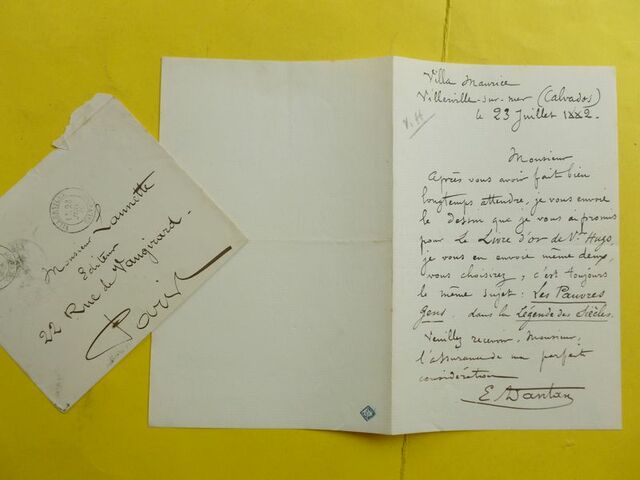 Villa Maurice
Villerville-sur-mer (Calvados)
le 23 Juillet 1882.
V. H
Monsieur
Après vous avoir fait bien
longtemps attendre, je vous envoie
le dessin que je vous ai promis
pour Le Livre d'or de V. Hugo,
je vous en envoie même deux,
vous choisirez ; c'est toujours
le même sujet : Les Pauvres
Gens. dans la Légende des Siècles.
Veuillez recevoir, Monsieur,
l'assurance de ma parfaite
considération
E. Dantan
Monsieur Launette
Editeur
22 Rue de Vaugirard.
Paris